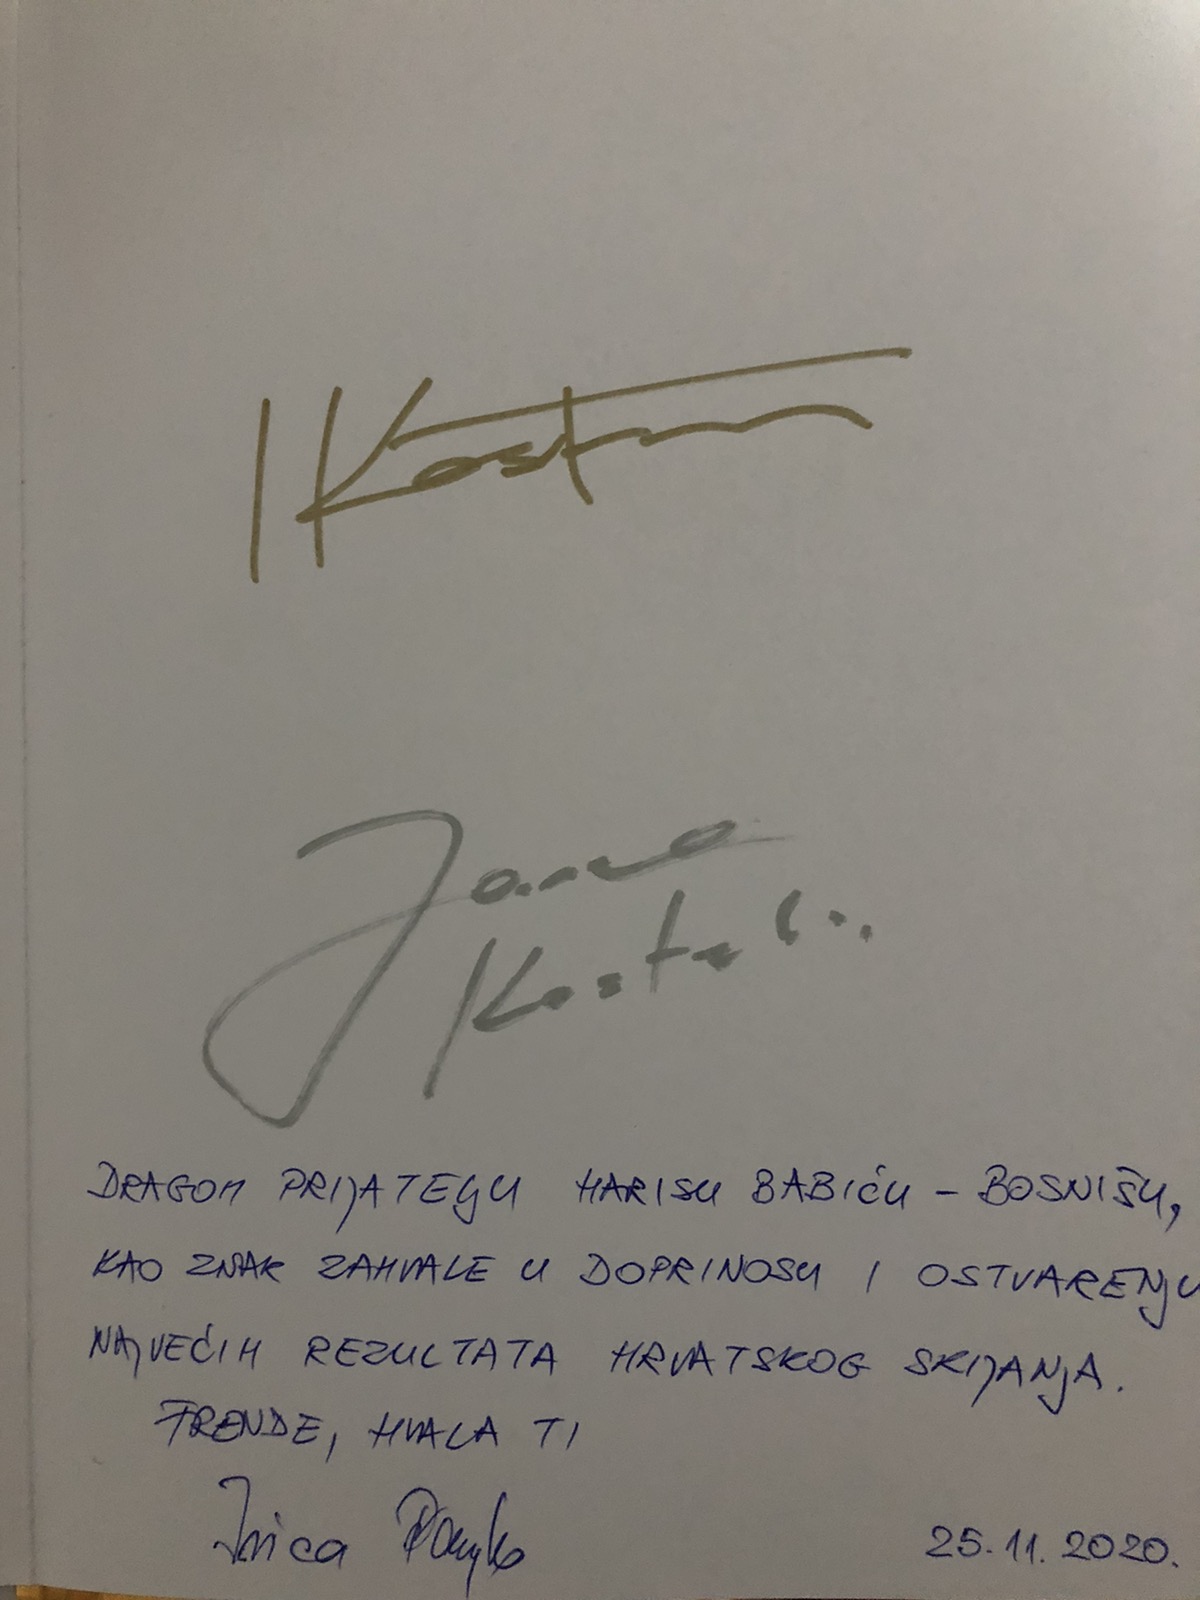 I Kostelić
Janica
Kostelić
DRAGOM PRIJATELJU HARISU BABIĆU - BOSNIŠU,
KAO ZNAK ZAHVALE U DOPRINOSU I OSTVARENJU
NAJVEĆIH REZULTATA HRVATSKOG SKIJANJA.
FRENDE, HVALA TI
Ivica
25.11.2020.